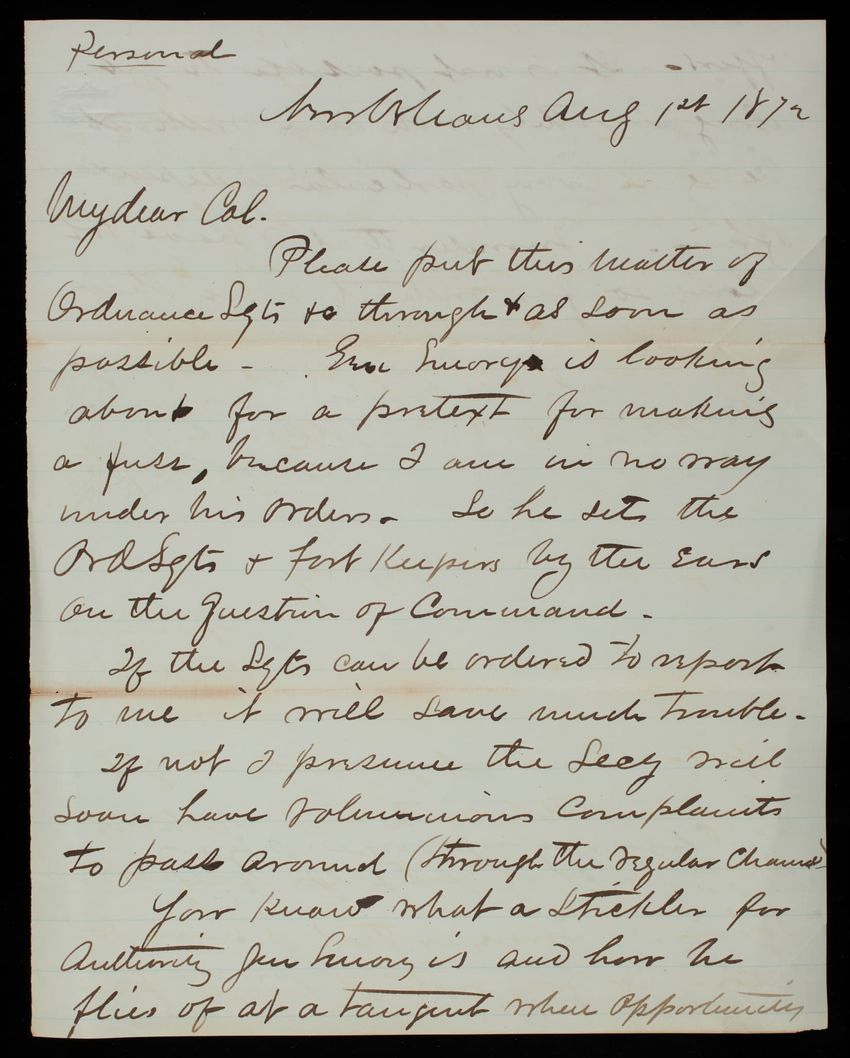 Personal
New Orleans Aug 1st 1872
My dear Col.
Please put this matter of
Ordnance Sgts &c through as soon as
possible - Gen Emory is looking
about for a pretext for making
a fuss, because I am in no way
under his orders - So he sets the
Ord Sgts & Fort Keepers by the ears
on the Question of Command -
If the Sgts can be ordered to report
to me it will save much trouble -
If not I presume the Secy will
soon have voluminous complaints
to pass around (through the regular Channel)
You know what a stickler for
Authority Gen Emory is and how he
flies of at a tangent when opportunity